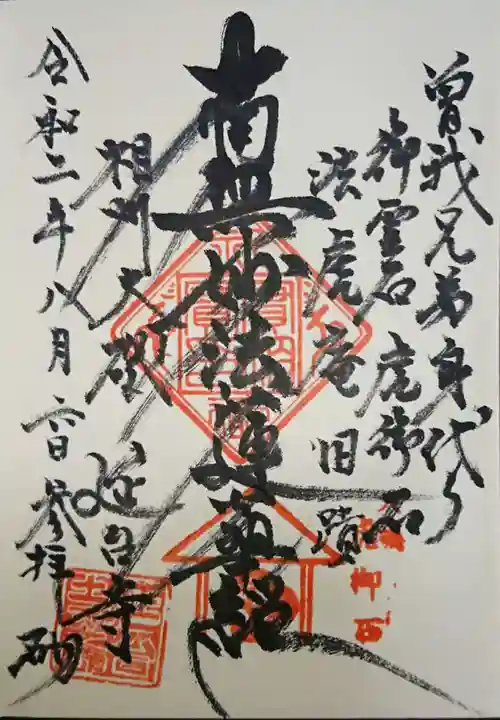 曽我兄弟身代り
御霊石 虎御石
法虎庵旧蹟
南無妙法蓮華経
相州大磯 延台寺
令和二年八月六日参拝 砌
虎御石